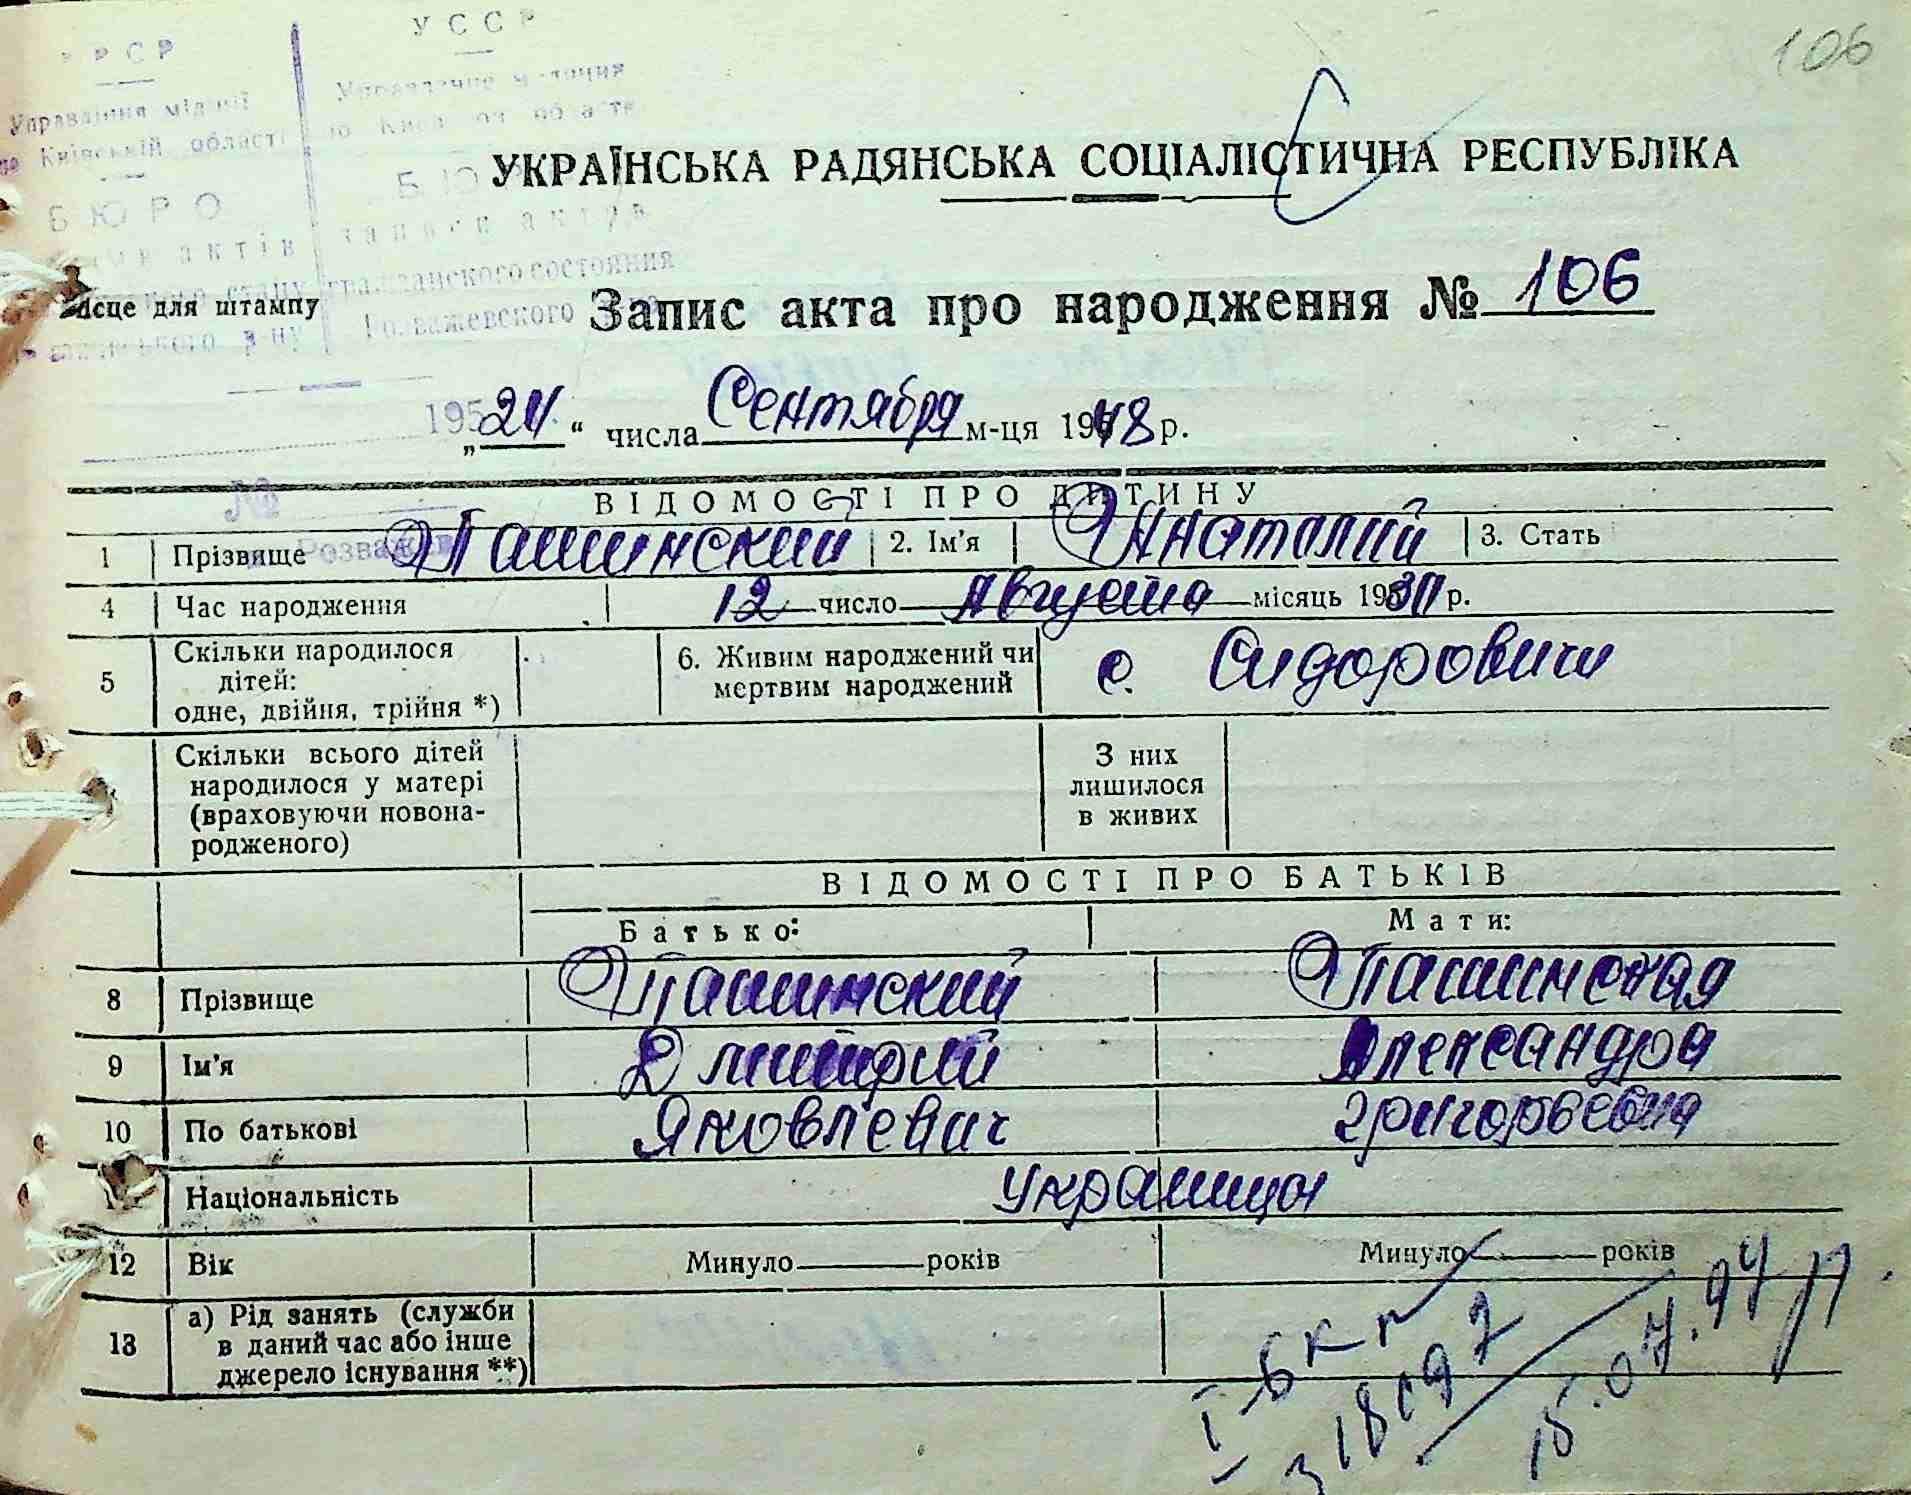 106
УССР
Управління міліції
Управление милиции
по Київській області
БЮРО
гражданского состояния
УКРАЇНСЬКА РАДЯНСЬКА СОЦІАЛІСТИЧНА РЕСПУБЛІКА
Місце для штампу
Запис акта про народження № 106
„24“ числа Сентября м-ця 1948 р.
195
№
ВІДОМОСТІ ПРО ДИТИНУ
1 Прізвище Пашинский 2. Ім'я Анатолий 3. Стать
4 Час народження 12 число Августа місяць 1930 р.
5 Скільки народилося дітей: одне, двійня, трійня *) 6. Живим народжений чи мертвим народжений с. Сидоровичи
Скільки всього дітей народилося у матері (враховуючи новонародженого) З них лишилося в живих
ВІДОМОСТІ ПРО БАТЬКІВ
Батько: Мати:
8 Прізвище Пашинский Пашинская
9 Ім'я Дмитрий Александра
10 По батькові Яковлевич Григорьевна
Національність Украинцы
12 Вік Минуло років Минуло років
13 а) Рід занять (служби в даний час або інше джерело існування **)